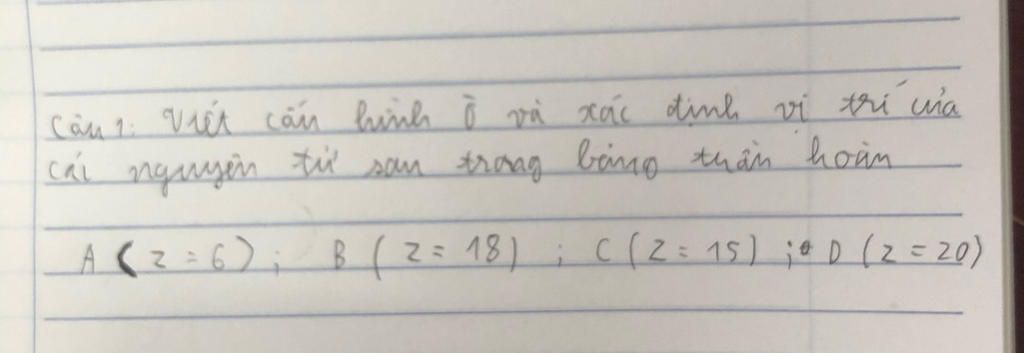 Câu 1: Viết cấu hình ē và xác định vị trí của
các nguyên tử sau trong bảng tuần hoàn
A (Z = 6) ; B (Z = 18) ; C (Z = 15) ; D (Z = 20)